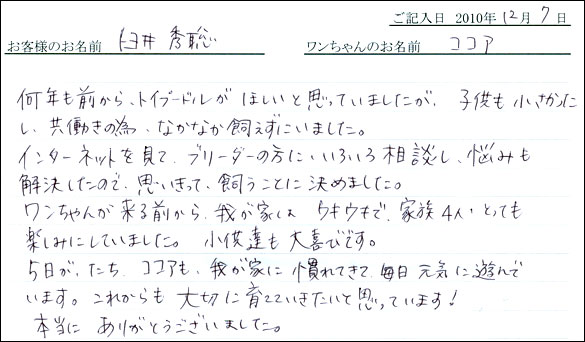 ご記入日 2010年 12月 7日
お客様のお名前 臼井 秀聡 ワンちゃんのお名前 ココア
何年も前から、トイプードルが ほしいと思っていましたが、子供も小さかった
し、共働きの為、なかなか飼えずにいました。
インターネットを見て、ブリーダーの方に、いろいろ相談し、悩みも
解決したので、思いきって、飼うことに決めました。
ワンちゃんが来る前から、我が家は ウキウキで、家族4人、とっても
楽しみにしていました。小供達も大喜びです。
5日が、たち、ココアも、我が家に慣れてきて、毎日元気に遊んで
います。これからも 大切に育てていきたいと思っています!
本当に ありがとうございました。